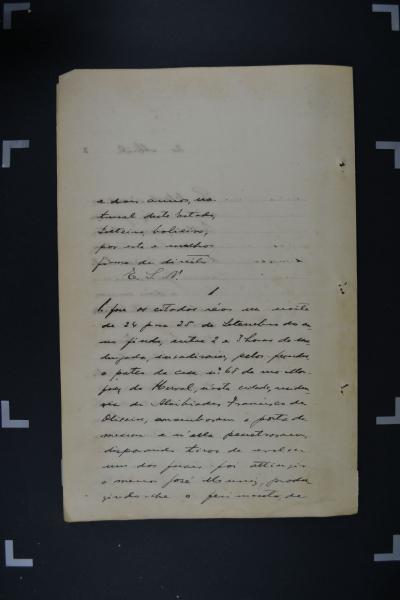 e dois annos, na
tural deste Estado,
solteiro, bolieiro;
por esta e melhor
forma de direito
E. S. N.
1
Que os citados réos na noite
de 24 para 25 de Setembro do an
no findo, entre 2 e 3 horas da ma
drugada, invadiram, pelos fundos
o pateo da casa nº 68 da rua Mar
quez do Herval, n'esta cidade, residen
cia de Alcibiades Francisco de
Oliveira, arrombaram a porta da
mesma e n'ella penetraram,
disparando tiros de revolver
um dos quaes foi attingir
o menor José Muniz, produ
zindo-lhe o ferimento de